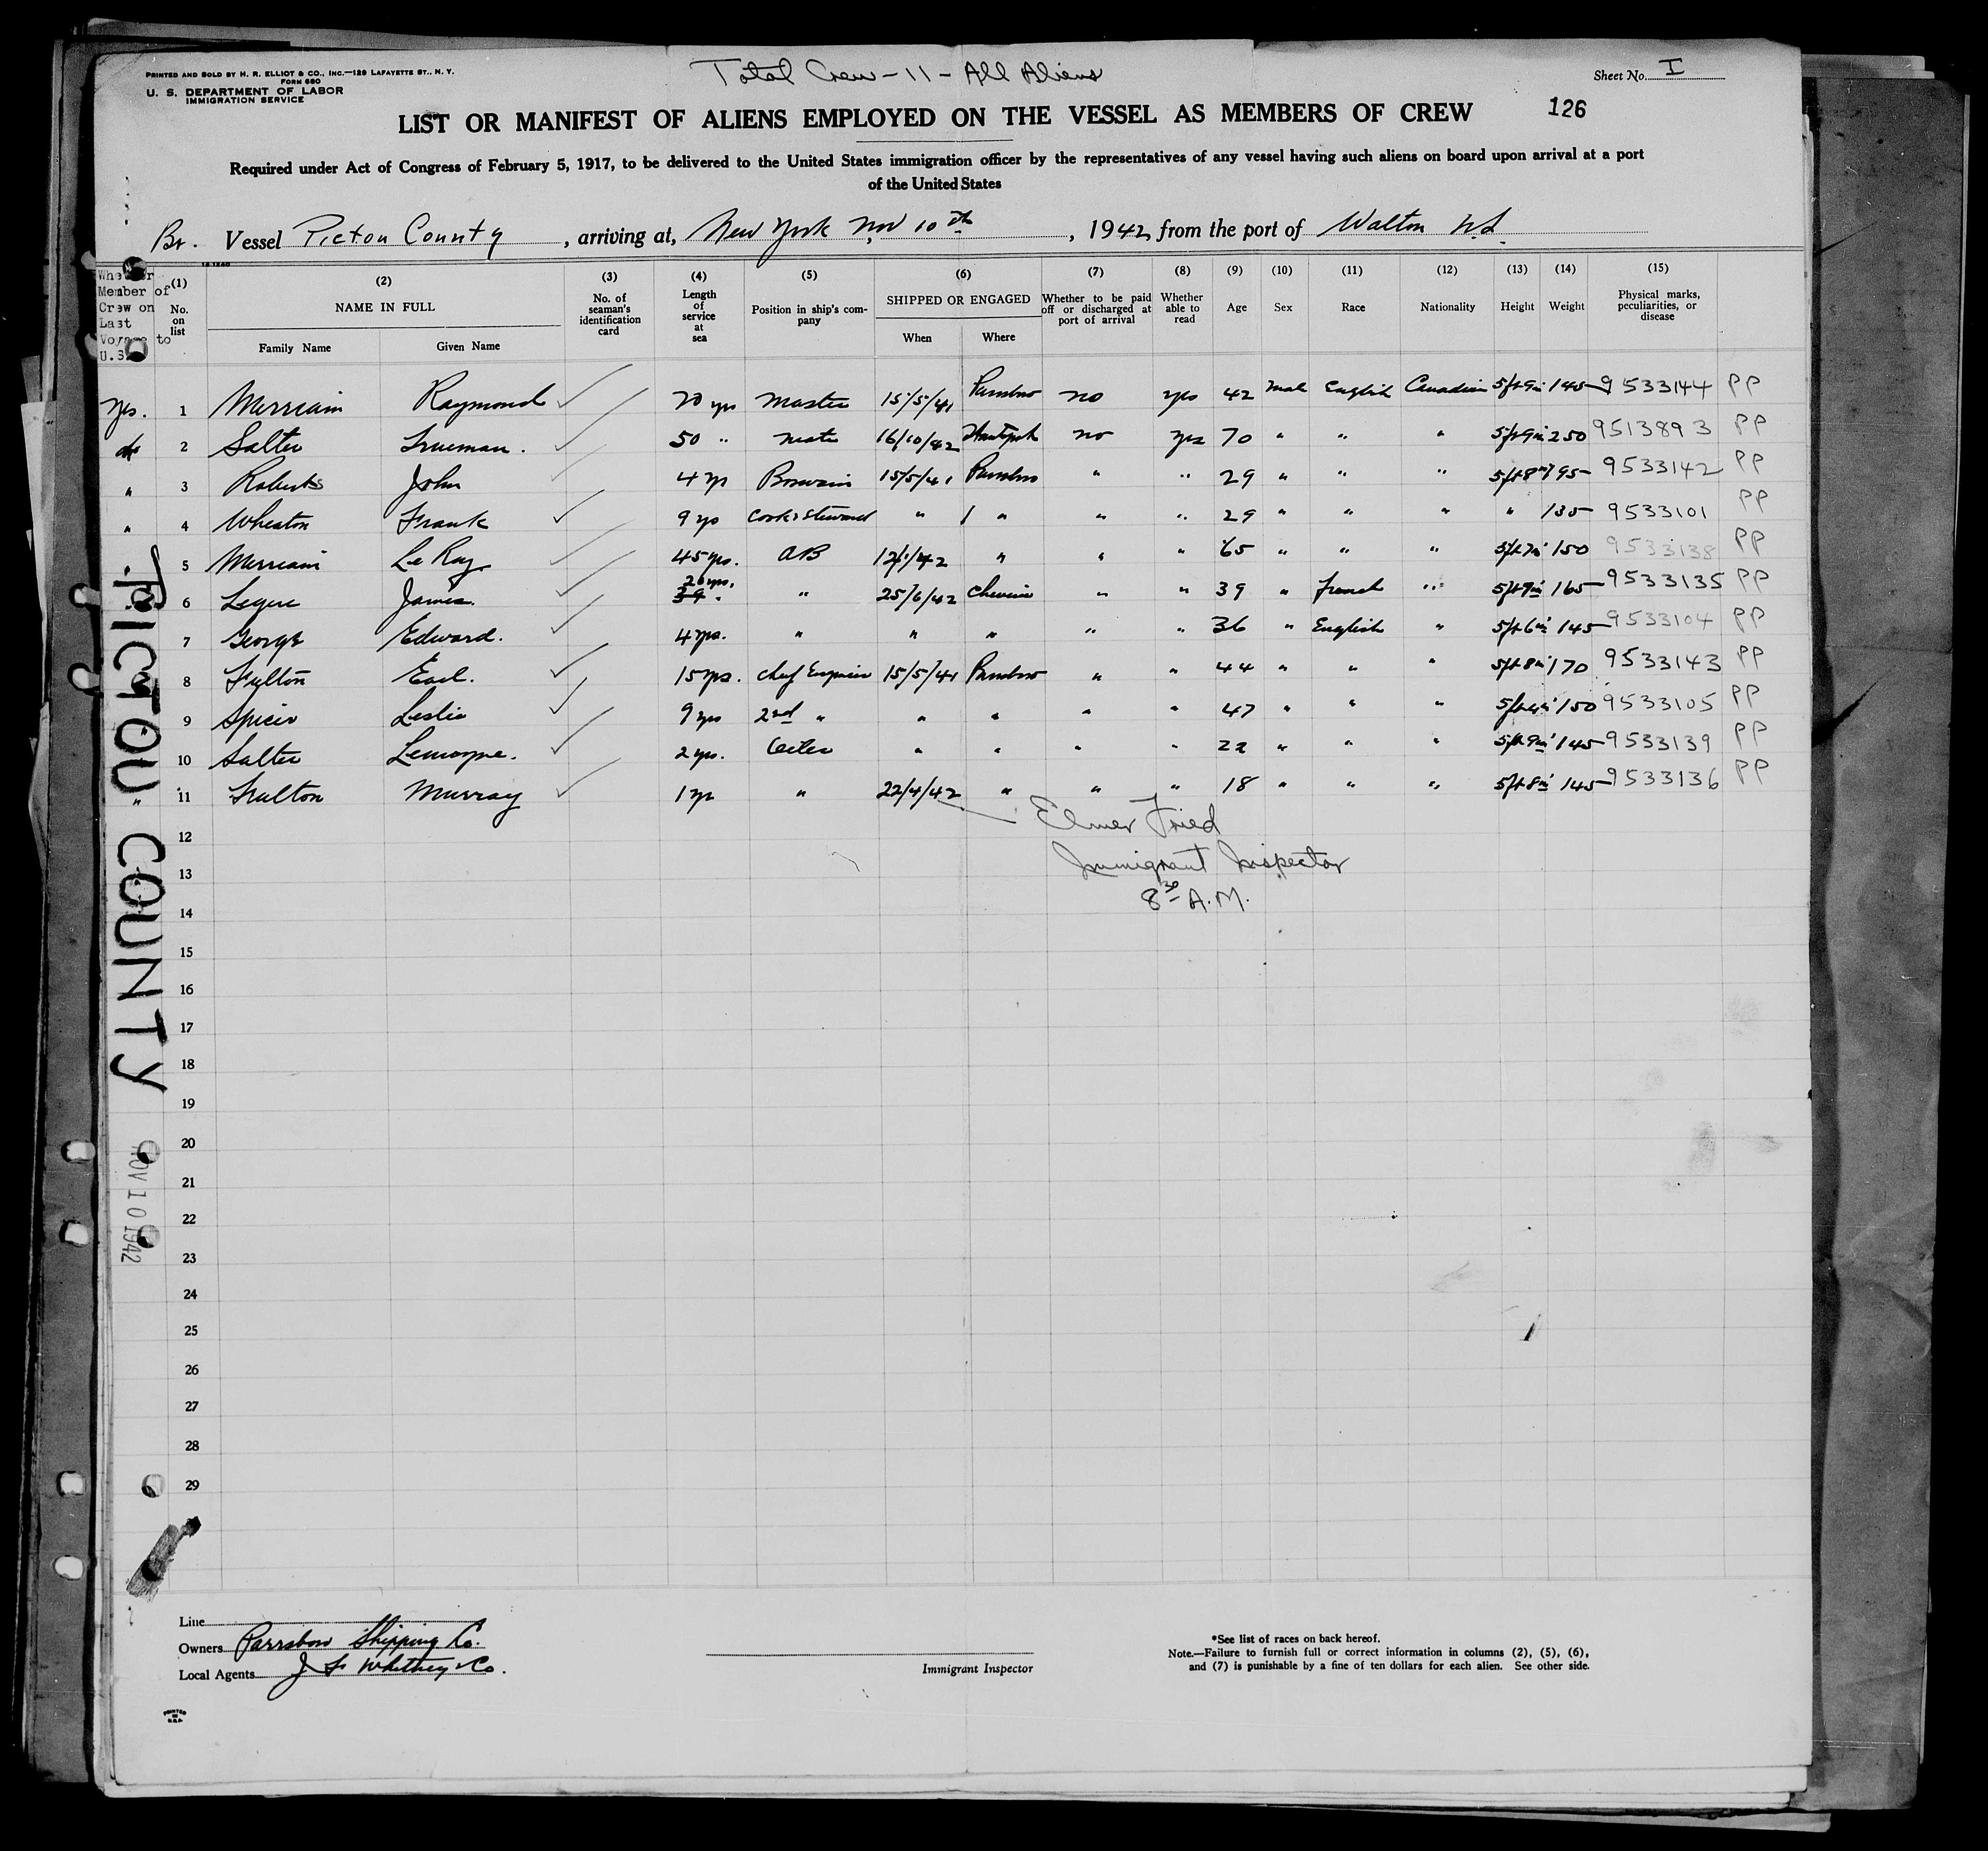 PRINTED AND SOLD BY H. R. ELLIOT & CO., INC.—129 LAFAYETTE ST., N. Y.
FORM 680
U. S. DEPARTMENT OF LABOR
IMMIGRATION SERVICE
Total Crew - 11 - All Aliens
Sheet No. I
LIST OR MANIFEST OF ALIENS EMPLOYED ON THE VESSEL AS MEMBERS OF CREW
126
Required under Act of Congress of February 5, 1917, to be delivered to the United States immigration officer by the representatives of any vessel having such aliens on board upon arrival at a port
of the United States
Br. Vessel Picton County, arriving at, New York Nov 10th, 1942 from the port of Walton N.S.
Whether Member of Crew on Last Voyage to U.S.
(1) No. on list
(2) NAME IN FULL
Family Name Given Name
(3) No. of seaman's identification card
(4) Length of service at sea
(5) Position in ship's company
(6) SHIPPED OR ENGAGED
When Where
(7) Whether to be paid off or discharged at port of arrival
(8) Whether able to read
(9) Age
(10) Sex
(11) Race
(12) Nationality
(13) Height
(14) Weight
(15) Physical marks, peculiarities, or disease
yes. 1 Merriam Raymond 20 yrs Master 15/5/41 no yes 42 Male English Canadian 5ft9in 145 9533144 PP
do 2 Salter Trueman. 50 " Mate 16/10/42 Hantsport no yes 70 " " " 5ft9in 250 9513893 PP
" 3 Roberts John 4 yr 15/5/41 " " 29 " " " 5ft8in 195 9533142 PP
" 4 Wheaton Frank 9 yrs Cook & Steward " " " " 29 " " " " 135 9533101 PP
5 Merriam LeRoy 45 yrs. AB " " " 65 " " " 5ft7in 150 9533138 PP
6 Legere James 20 yrs. " 25/6/42 " " 39 " French " 5ft9in 165 9533135 PP
7 George Edward. 4 yrs. " " " " " 36 " English " 5ft6in 145 9533104 PP
8 Fulton Earl. 15 yrs. Chief Engineer 15/5/41 " " 44 " " " 5ft8in 170 9533143 PP
9 Spicer Leslie 9 yrs 2nd " " " " " 47 " " " 150 9533105 PP
10 Salter 2 yrs. Oiler " " " " 22 " " " 5ft9in 145 9533139 PP
11 Fulton Murray 1 yr " 22/4/42 " " " 18 " " " 5ft8in 145 9533136 PP
Elmer Fried
Immigrant Inspector
8 30 A.M.
12
13
14
15
16
17
18
19
20
21
22
23
24
25
26
27
28
29
PICTOU COUNTY
NOV 10 1942
Line
Owners Parrsboro Shipping Co.
Local Agents J F Whitney & Co.
Immigrant Inspector
*See list of races on back hereof.
Note.—Failure to furnish full or correct information in columns (2), (5), (6),
and (7) is punishable by a fine of ten dollars for each alien. See other side.
PRINTED
IN
U.S.A.